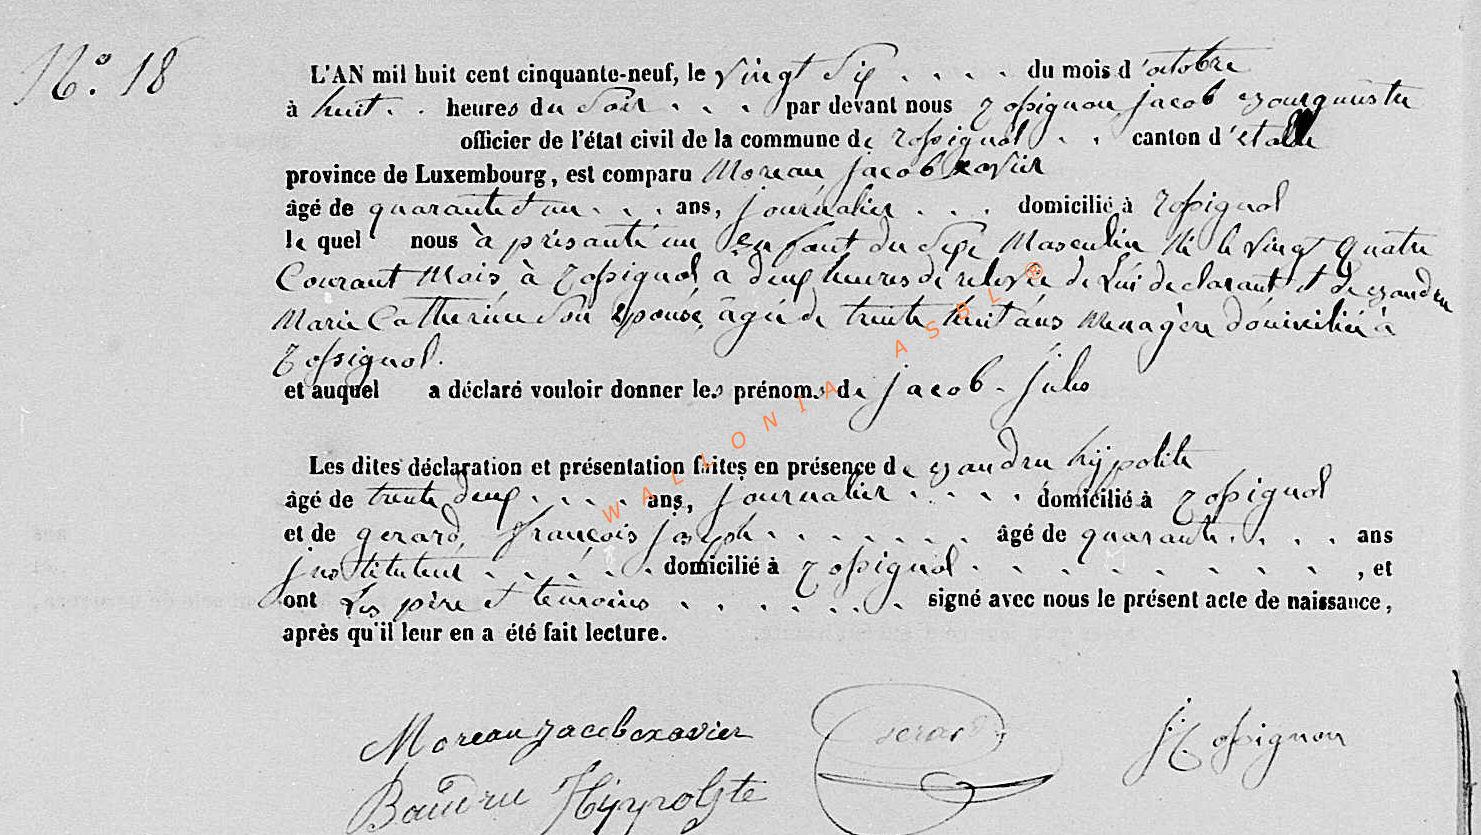 N.º 18
L'AN mil huit cent cinquante-neuf, le vingt six . . . . du mois d'octobre
à huit . . heures du soir . . . par devant nous rossignon jacob bourguustre
officier de l'état civil de la commune de rossignol . . canton d'etalle
province de Luxembourg, est comparu Moreau jacob xavier
âgé de quarante et un . . . ans, journalier . . . domicilié à rossignol
le quel nous à présanté un enfant du sexe Masculin Né le vingt quatre
Courant Mois, à rossignol à deux heures de relevée de Lui declarant et de baudru
Marie Catherine Son épouse, âgée de trente huit ans Menagère domiciliée à
rossignol.
et auquel a déclaré vouloir donner les prénoms de jacob - jules
Les dites déclaration et présentation faites en présence de baudru hyppolite
âgé de trente deux . . . . ans, journalier . . . . domicilié à rossignol
et de gerard, françois joseph . . . . . . . âgé de quarante . . . . ans
jnstituteur . . . . . . domicilié à rossignol . . . . . . . . , et
ont Les père et temoins . . . . . . . signé avec nous le présent acte de naissance,
après qu'il leur en a été fait lecture.
Moreau jacob xavier Gerard J. rossignon
Baudru Hyppolyte
WALLONIA ASBL ®